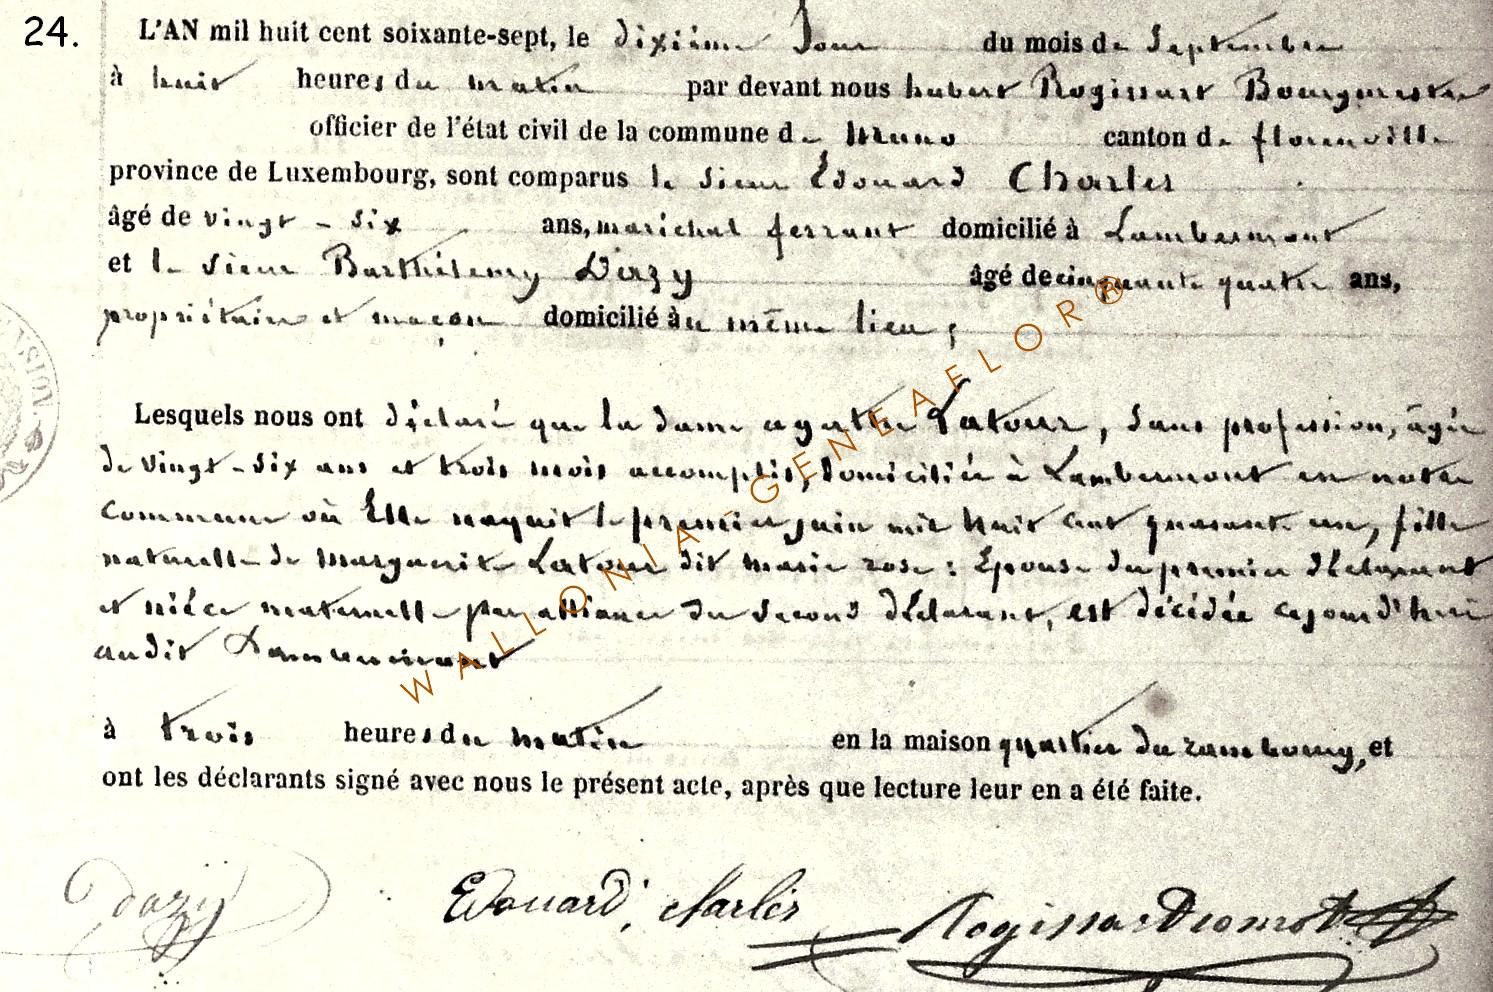 24. L'AN mil huit cent soixante-sept, le dixième Jour du mois de Septembre
à huit heures du matin par devant nous hubert Rogissart Bourgmestre
officier de l'état civil de la commune de Muno canton de florenville
province de Luxembourg, sont comparus le sieur Edouard Charles
âgé de vingt - six ans, maréchal ferrant domicilié à Lambermont
et le sieur Barthélemy Dazy âgé de cinquante quatre ans,
propriétaire et maçon domicilié au même lieu ;
Lesquels nous ont déclaré que la dame agathe Latour, sans profession, âgée
de vingt-six ans et trois mois accomplis, domiciliée à Lambermont en notre
commune où Elle naquit le premier juin mil huit cent quarante un, fille
naturelle de Marguerite Latour dit marie rose : Epouse du premier déclarant
et nièce maternelle par alliance du second déclarant, est décédée cejourd'hui
audit Lambermont
à trois heures du matin en la maison quartier du , et
ont les déclarants signé avec nous le présent acte, après que lecture leur en a été faite.
dazy Edouard, charles Rogissart
WALLONIA-GENEAFLOR®